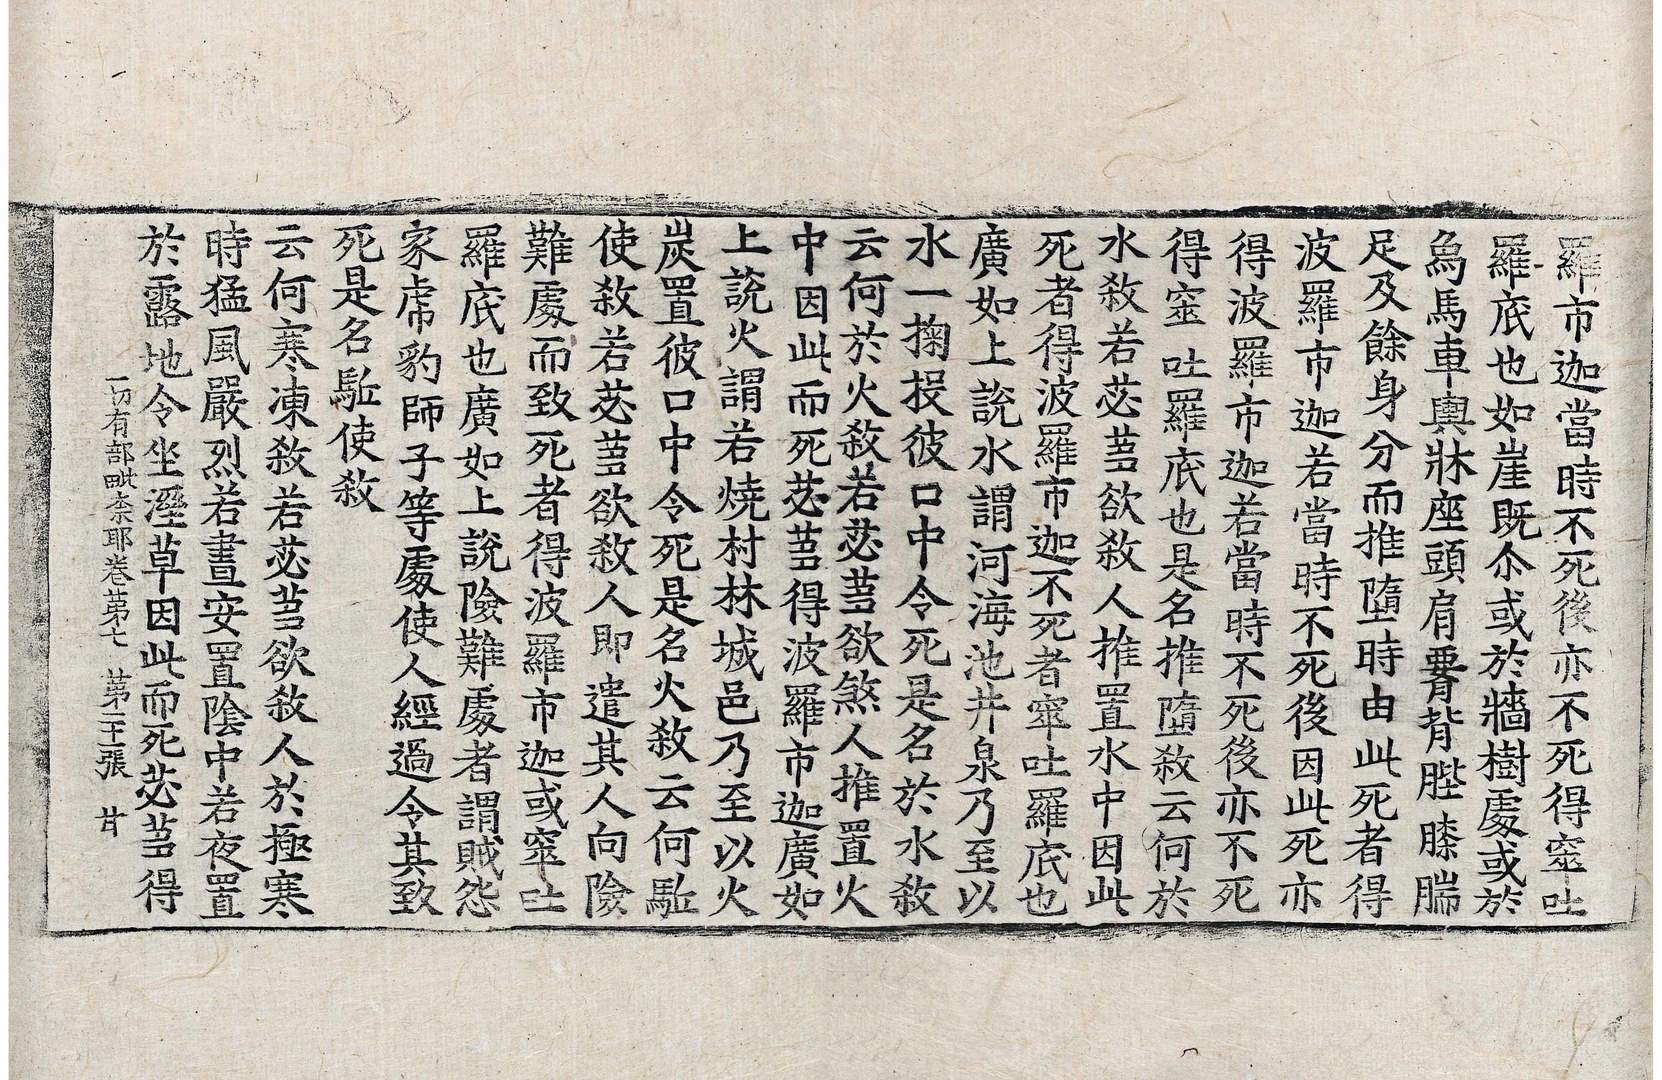 羅市迦當時不死後亦不死得窣吐
羅底也如崖既尒或於牆樹處或於
象馬車輿牀座頭肩𦝫背䏶膝腨
足及餘身分而推墮時由此死者得
波羅市迦若當時不死後因此死亦
得波羅市迦若當時不死後亦不死
得窣吐羅底也是名推墮殺云何於
水殺若苾芻欲殺人推置水中因此
死者得波羅市迦不死者窣吐羅底也
廣如上說水謂河海池井泉乃至以
水一掬投彼口中令死是名於水殺
云何於火殺若苾芻欲煞人推置火
中因此而死苾芻得波羅市迦廣如
上說火謂若燒村林城邑乃至以火
炭置彼口中令死是名火殺云何駈
使殺若苾芻欲殺人即遣其人向險
難處而致死者得波羅市迦或窣吐
羅底也廣如上說險難處者謂賊怨
家虎豹師子等處使人經過令其致
死是名駈使殺
云何寒凍殺若苾芻欲殺人於極寒
時猛風嚴烈若晝安置陰中若夜置
於露地令坐溼草因此而死苾芻得
一切有部毗柰耶卷苐七　苐二十張　甘